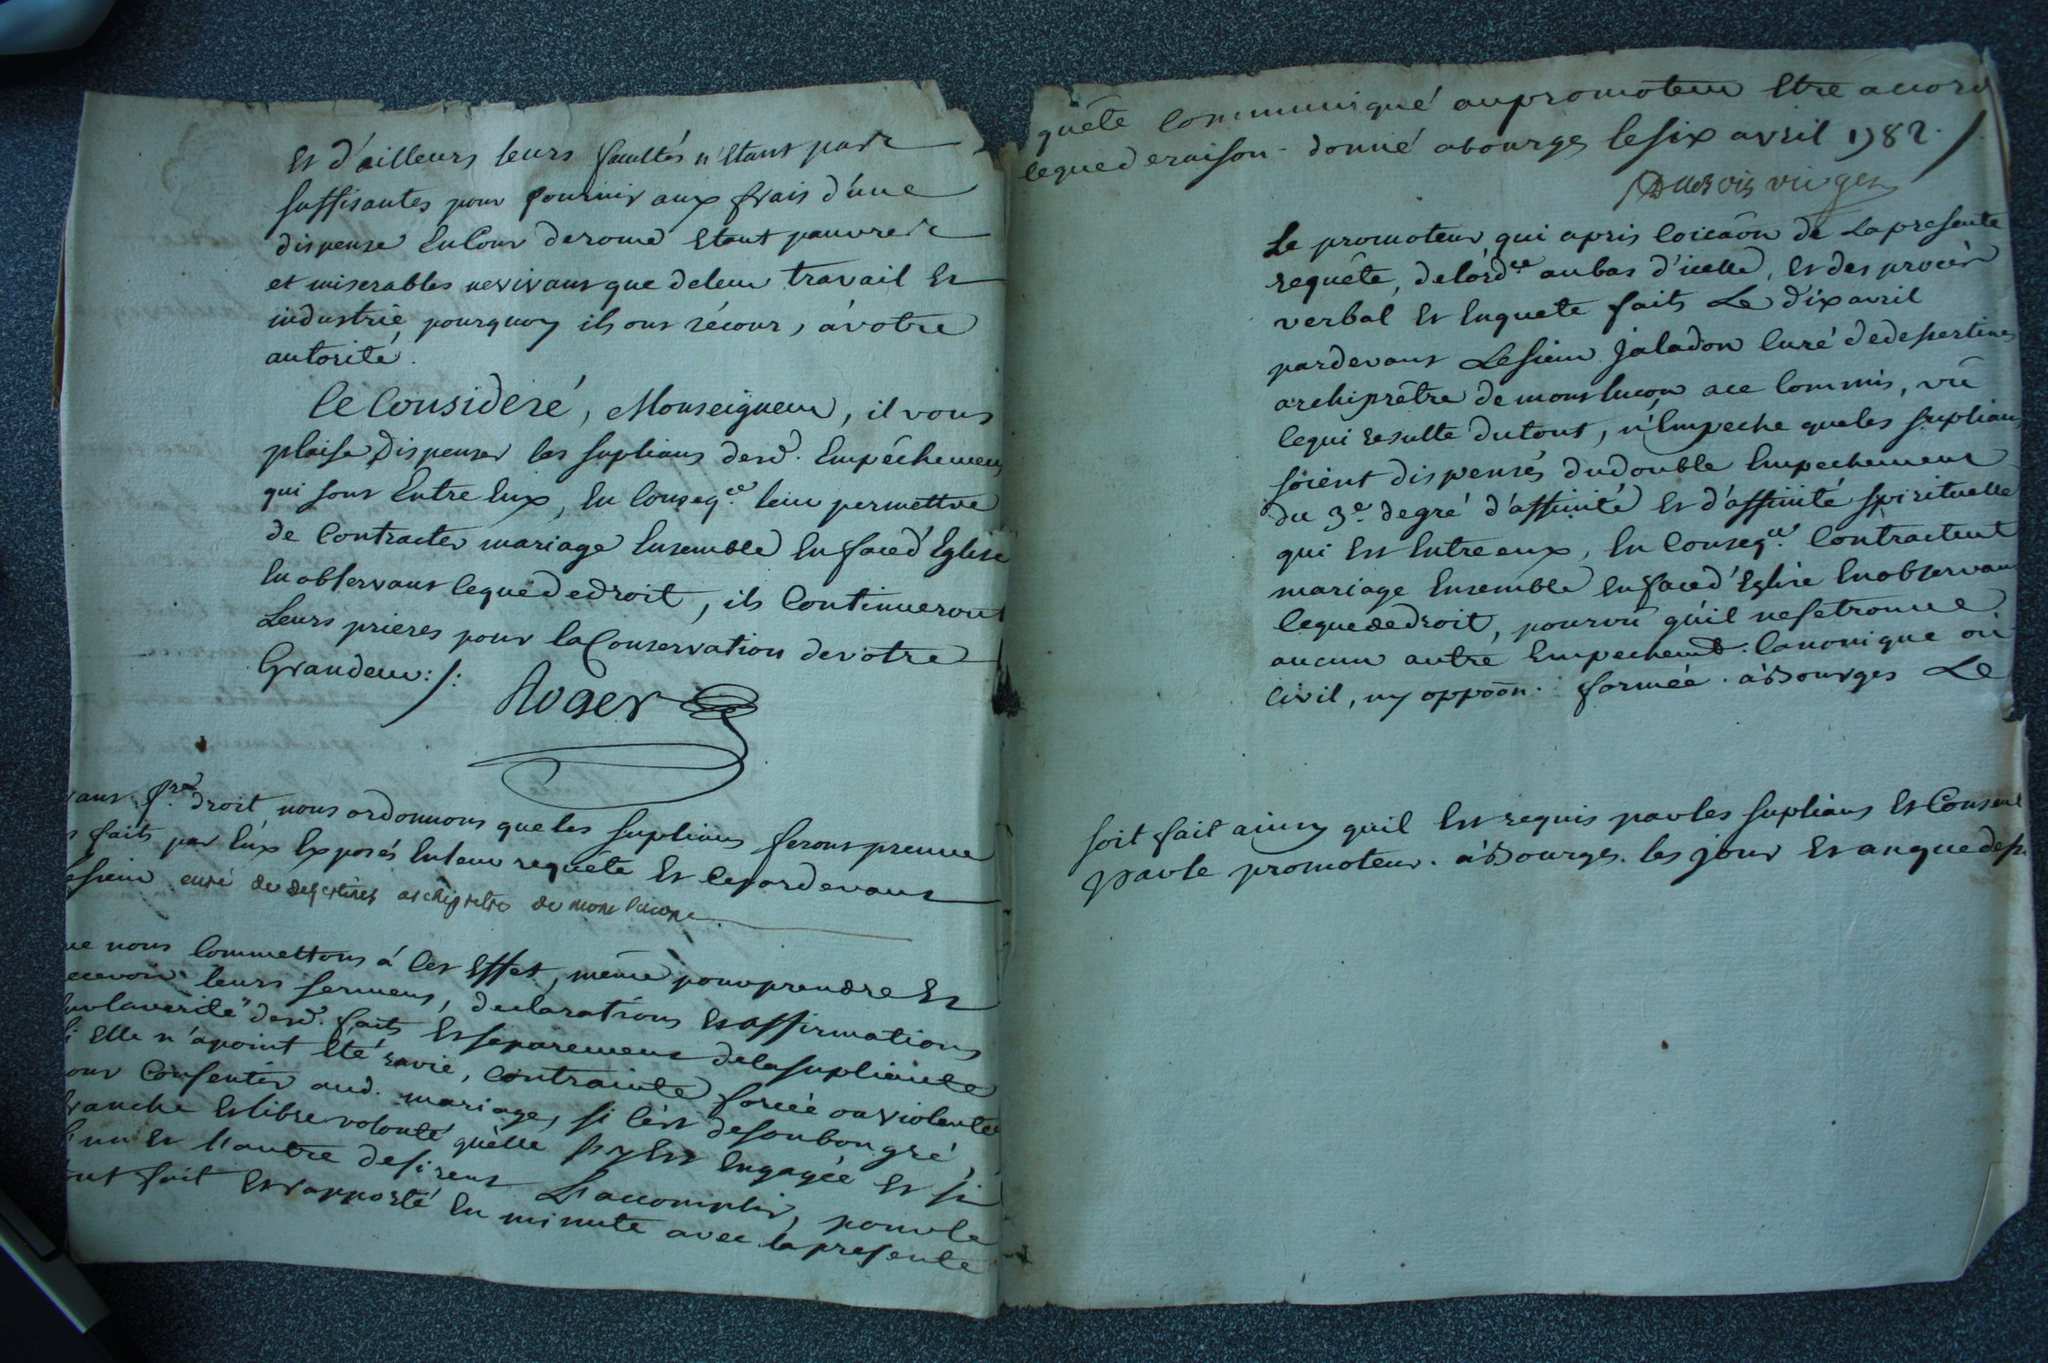 Et d'ailleurs leurs facultés n'étant pas
suffisantes pour fournir aux frais d'une
dispense En Cour de rome Etant pauvres
et miserables ne vivans que de leur travail Et
industrie, pourquoy ils ont récour, à votre
autorité.
Ce Consideré, Monseigneur, il vous
plaise Dispenser les suplians desd. Empêchemens
qui sont Entre Eux, En Conseq.ce leur permettre
de Contracter mariage Ensemble En face d'Eglise
En observant ce que de droit, ils Continueront
Leurs prieres pour la Conservation de votre
Grandeur ./.
Roger
avant f.re droit, nous ordonnons que les suplians feront preuve
faits par Eux Exposés En leur requête Et ce pardevant
sieur curé de desertines archipretre de mont lucon
que nous Commettons à Cet Effet, même pour prendre Et
recevoir leurs sermens, declarations Et affirmations
sur la verité desd. faits Et separement de la supliante
si Elle n'a point Eté ravie, Contrainte forcée ou violentée
pour Consentir aud. mariage, si C'est de son bon gré,
franche Et libre volonté qu'elle s'y Est Engagée Et si
l'un Et l'autre desirent L'accomplir, pour le
tout fait Et rapporté En minute avec la presente
quête Communiqué au promoteur Etre accord
ce que de raison. donné a bourges le six avril 1782 ./.
Dubois vic ger
Le promoteur qui a pris Coicaôn de La presente
requête, de l'ord.ce au bas d'icelle, Et des procès
verbal Et Enquete faits Le dix avril
pardevant Le sieur Jaladon Curé de desertines
archiprêtre de mont lucon a ce Commis, vû
ce qui resulte du tout, n'Empeche que les suplians
soient dispensés du double Empechement
du 3.e degré d'affinité Et d'affinité spirituelle
qui Est Entre eux, En Conseq.ce Contractent
mariage Ensemble En face d'Eglise En observant
ce que de droit, pourvû qu'il ne se trouve
aucun autre Empechemt. Canonique ou
Civil, ny oppôon. formée. à Bourges Le
soit fait ainsy qu'il Est requis par les suplians Et Consenti
par le promoteur. à Bourges. les jour Et an que dess